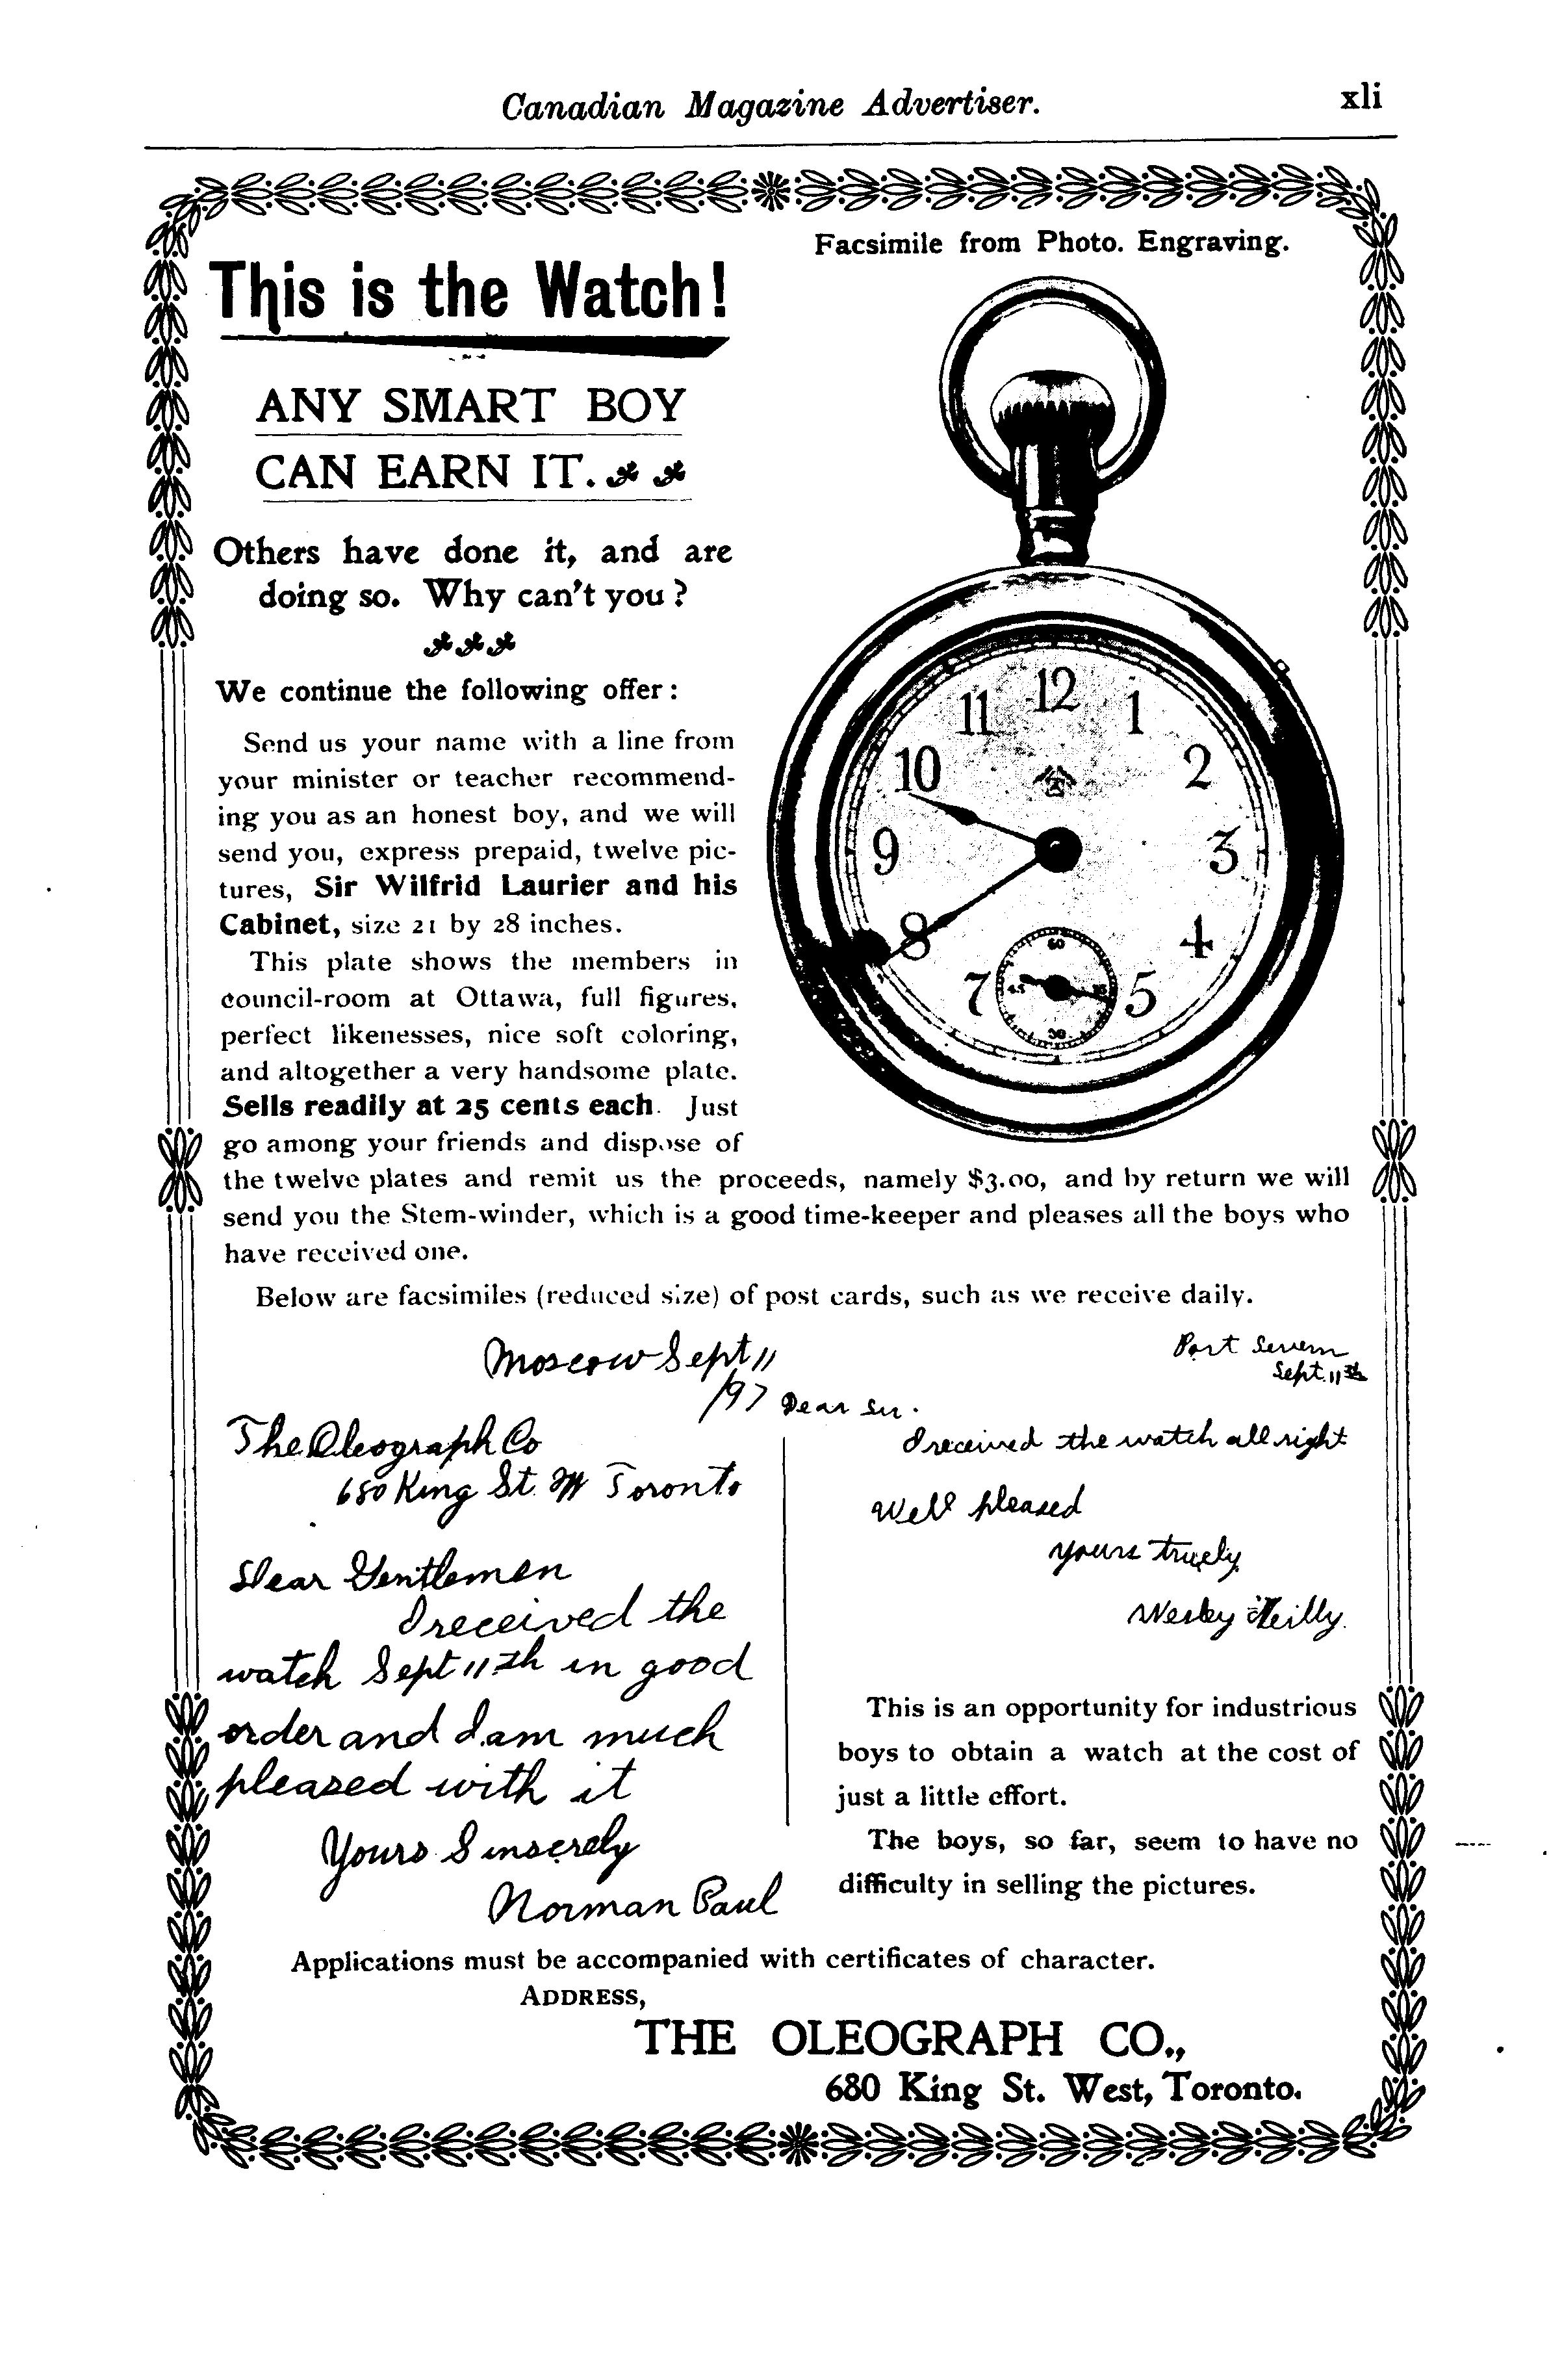 Canadian Magazine Advertiser.
xli
Facsimile from Photo. Engraving.
This is the Watch!
ANY SMART BOY
CAN EARN IT.
Others have done it, and are
doing so. Why can't you?
We continue the following offer:
Send us your name with a line from
your minister or teacher recommend-
ing you as an honest boy, and we will
send you, express prepaid, twelve pic-
tures, Sir Wilfrid Laurier and his
Cabinet, size 21 by 28 inches.
This plate shows the members in
council-room at Ottawa, full figures,
perfect likenesses, nice soft coloring,
and altogether a very handsome plate.
Sells readily at 25 cents each. Just
go among your friends and dispose of
the twelve plates and remit us the proceeds, namely $3.00, and by return we will
send you the Stem-winder, which is a good time-keeper and pleases all the boys who
have received one.
12
1
2
3
4
5
7
8
9
10
11
60
15
30
45
Below are facsimiles (reduced size) of post cards, such as we receive daily.
Moscow Sept 11
/97
The Oleograph Co
680 King St. W Toronto
Dear Gentlemen
I received the
watch Sept 11th in good
order and I am much
pleased with it
Yours Sinserely
Norman Paul
Port Severn
Sept. 11th
Dear Sir.
I received the watch all right
Well pleased
yours truely
Wesley Reilly.
This is an opportunity for industrious
boys to obtain a watch at the cost of
just a little effort.
The boys, so far, seem to have no
difficulty in selling the pictures.
Applications must be accompanied with certificates of character.
ADDRESS,
THE OLEOGRAPH CO.,
680 King St. West, Toronto.